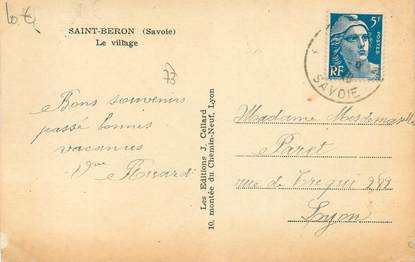 10€
SAINT-BERON (Savoie)
Le village
73
Bons souvenirs
passé bonnes
vacances
Vve Huard
Les Editions J. Cellard
10, montée du Chemin-Neuf, Lyon
5F
POSTES
RF
SAVOIE
Madame Mesdemoiselles
Paret
rue de 282
Lyon